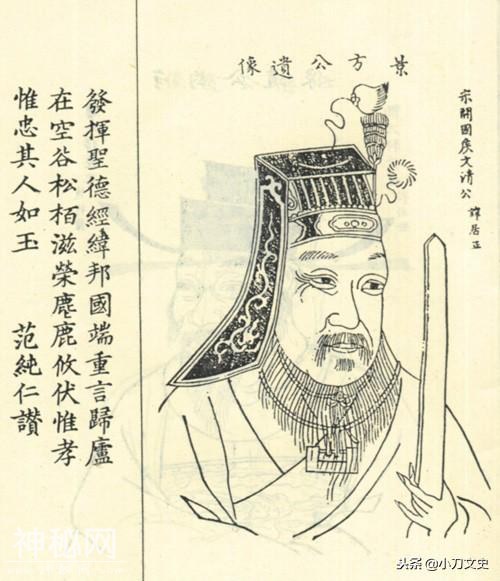 景方公遺像
宋開國侯文清公 諱居正
發揮聖德經緯邦國端重言歸廬
在空谷松栢滋榮麀鹿攸伏惟孝
惟忠其人如玉 范純仁讚
神秘网
头条 @小刀文史